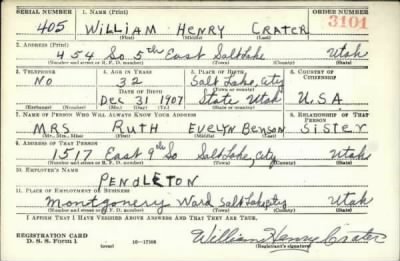 SERIAL NUMBER 1. NAME (Print) ORDER NUMBER
405 WILLIAM HENRY CRATER 3101
(First) (Middle) (Last)
2. ADDRESS (Print)
454 So 5th East Salt Lake Utah
(Number and street or R. F. D. number) (Town) (County) (State)
3. TELEPHONE 4. AGE IN YEARS 5. PLACE OF BIRTH 6. COUNTRY OF CITIZENSHIP
No 32 Salt Lake City
DATE OF BIRTH (Town or county)
Dec 31 1907 State Utah U.S.A
(Exchange) (Number) (Mo.) (Day) (Yr.) (State or country)
7. NAME OF PERSON WHO WILL ALWAYS KNOW YOUR ADDRESS 8. RELATIONSHIP OF THAT PERSON
MRS RUTH EVELYN Benson Sister
(Mr., Mrs., Miss) (First) (Middle) (Last)
9. ADDRESS OF THAT PERSON
1517 East 9th So Salt Lake City Utah
(Number and street or R. F. D. number) (Town) (County) (State)
10. EMPLOYER'S NAME
PENDLETON
11. PLACE OF EMPLOYMENT OR BUSINESS
Montgomery Ward Salt Lake City Utah
(Number and street or R. F. D. number) (Town) (County) (State)
I AFFIRM THAT I HAVE VERIFIED ABOVE ANSWERS AND THAT THEY ARE TRUE.
REGISTRATION CARD
D. S. S. Form 1 16—17105 William Henry Crater
(Registrant's signature)